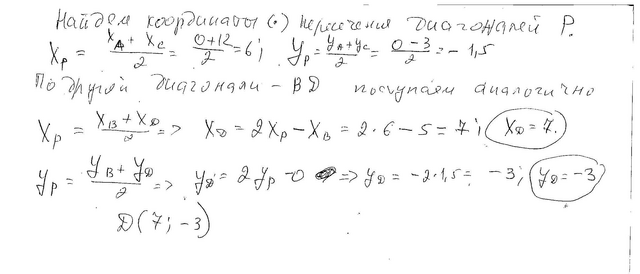 Найдем координаты (·) пересечения диагоналей P.
X_P = (X_A + X_C)/2 = (0+12)/2 = 6; y_P = (y_A + y_C)/2 = (0-3)/2 = -1,5
По другой диагонали - BD поступаем аналогично
X_P = (X_B + X_D)/2 => X_D = 2X_P - X_B = 2·6 - 5 = 7; X_D = 7.
y_P = (y_B + y_D)/2 => y_D = 2y_P - 0 => y_D = -2·1,5 = -3; y_D = -3
D(7; -3)